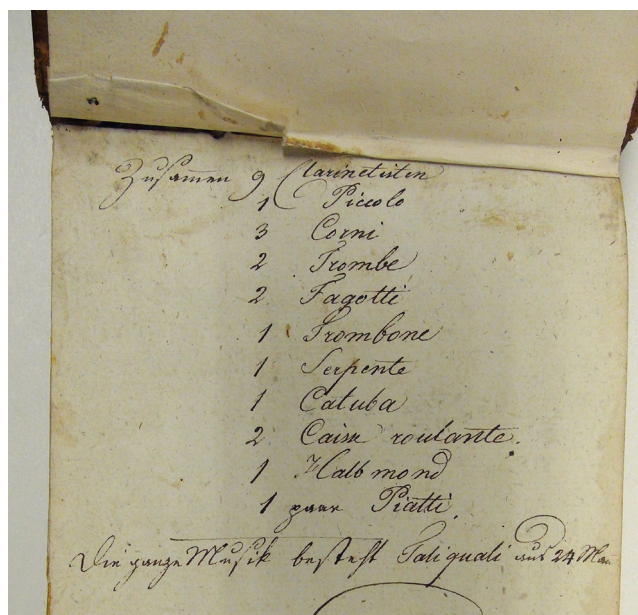 Zusamen 9 Clarinetisten
1 Piccolo
3 Corni
2 Trombe
2 Fagotti
1 Trombone
1 Serpente
1 Catuba
2 Caise roulante.
1 Halbmond
1 paar Piatti
Die ganze Musik besteht Tali quali aus 24 Man